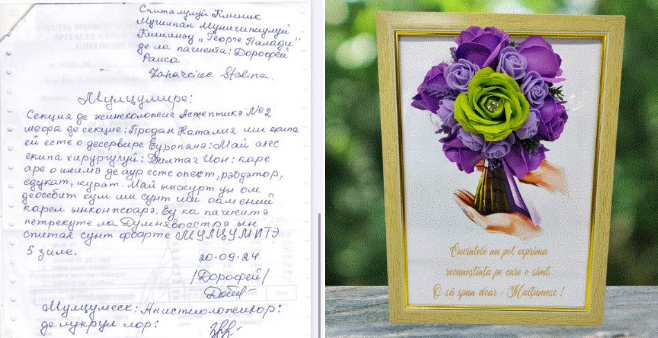 Спиталулуй Клиник
Мунчипал Муничипиулуй
Кишинэу „Георге Палади"
де ла пачиента: Дорофей
Раиса
Zaharciuc Stelina.
Мулцумире:
Секция де жинекологие Асептикэ №2
шефа де секцие: Продан Наталия ши екипа
ей есте о десервире Еуропянэ: Май алес
екипа хирургулуй: Балтаг Ион: каре
аре о инимэ де аур есте онест, рэбдэтор,
едукат, курат. Май ынскурт ун ом
деосебит кум ши сунт ши оамений
карей ынконжоарэ. Еу ка пачиентэ
петрекуте ла Думнявоастрэ ын
спитал сунт фоарте МУЛЦУМИТЭ
5 зиле.
20.09.24
/Дорофей/
Мулцумеск: Анистиологилор:
де лукрул лор:
Cuvintele nu pot exprima
recunoștința pe care o simt.
O să spun doar - Mulțumesc !